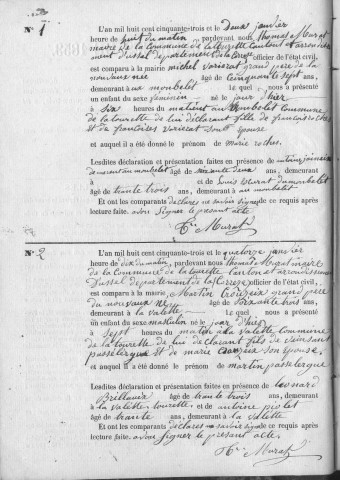 N° 1
L'an mil huit cent cinquante-trois et le deux janvier
heure de huit du matin, pardevant nous thomas Murat
maire de la Commune de latourette Canton et arrondisse
ment dussel departement de la Correze officier de l'état civil,
est comparu à la mairie michel varieras grand père de la
nouveau née âgé de Cinquante sept ans,
demeurant au monbelet lequel nous a présenté
un enfant du sexe féminin né le jour d'hier
à six heures du matin au monbelet Commune
de latourette de lui déclarant fille de françois roches
et de françoise varieras son épouse
et auquel il a été donné le prénom de marie roches
Lesdites déclaration et présentation faites en présence de antoine
demeurant au monbelet âgé de soixante deux ans,
et de Louis Murat du monbelet
âgé de trante trois ans, demeurant au monbelet
Et ont les comparants déclaré ne savoir signer de ce requis après
lecture faite. avons Signer le présent acte
Ts Murat
N° 2
L'an mil huit cent cinquante-trois et le quatorze janvier
heure de dix du matin, pardevant nous thomas Murat maire
de la Commune de latourette Canton et arrondissement
Dussel département de la Correze officier de l'état civil,
est comparu à la mairie Martin grand père
du nouveau né âgé de soixante trois ans,
demeurant à la valette lequel nous a présenté
un enfant du sexe masculin né le jour d'hier
à sept heures du matin à la valette Commune
de latourette de lui déclarant fils de
passelergue et de marie son épouse,
et auquel il a été donné le prénom de martin passelergue
Lesdites déclaration et présentation faites en présence de leonard
âgé de trante trois ans, demeurant
à la valette latourette et de antoine
âgé de trante ans, demeurant à la valette
Et ont les comparants déclaré ne savoir signer de ce requis après
lecture faite. avons signer le présent acte.
Ts Murat